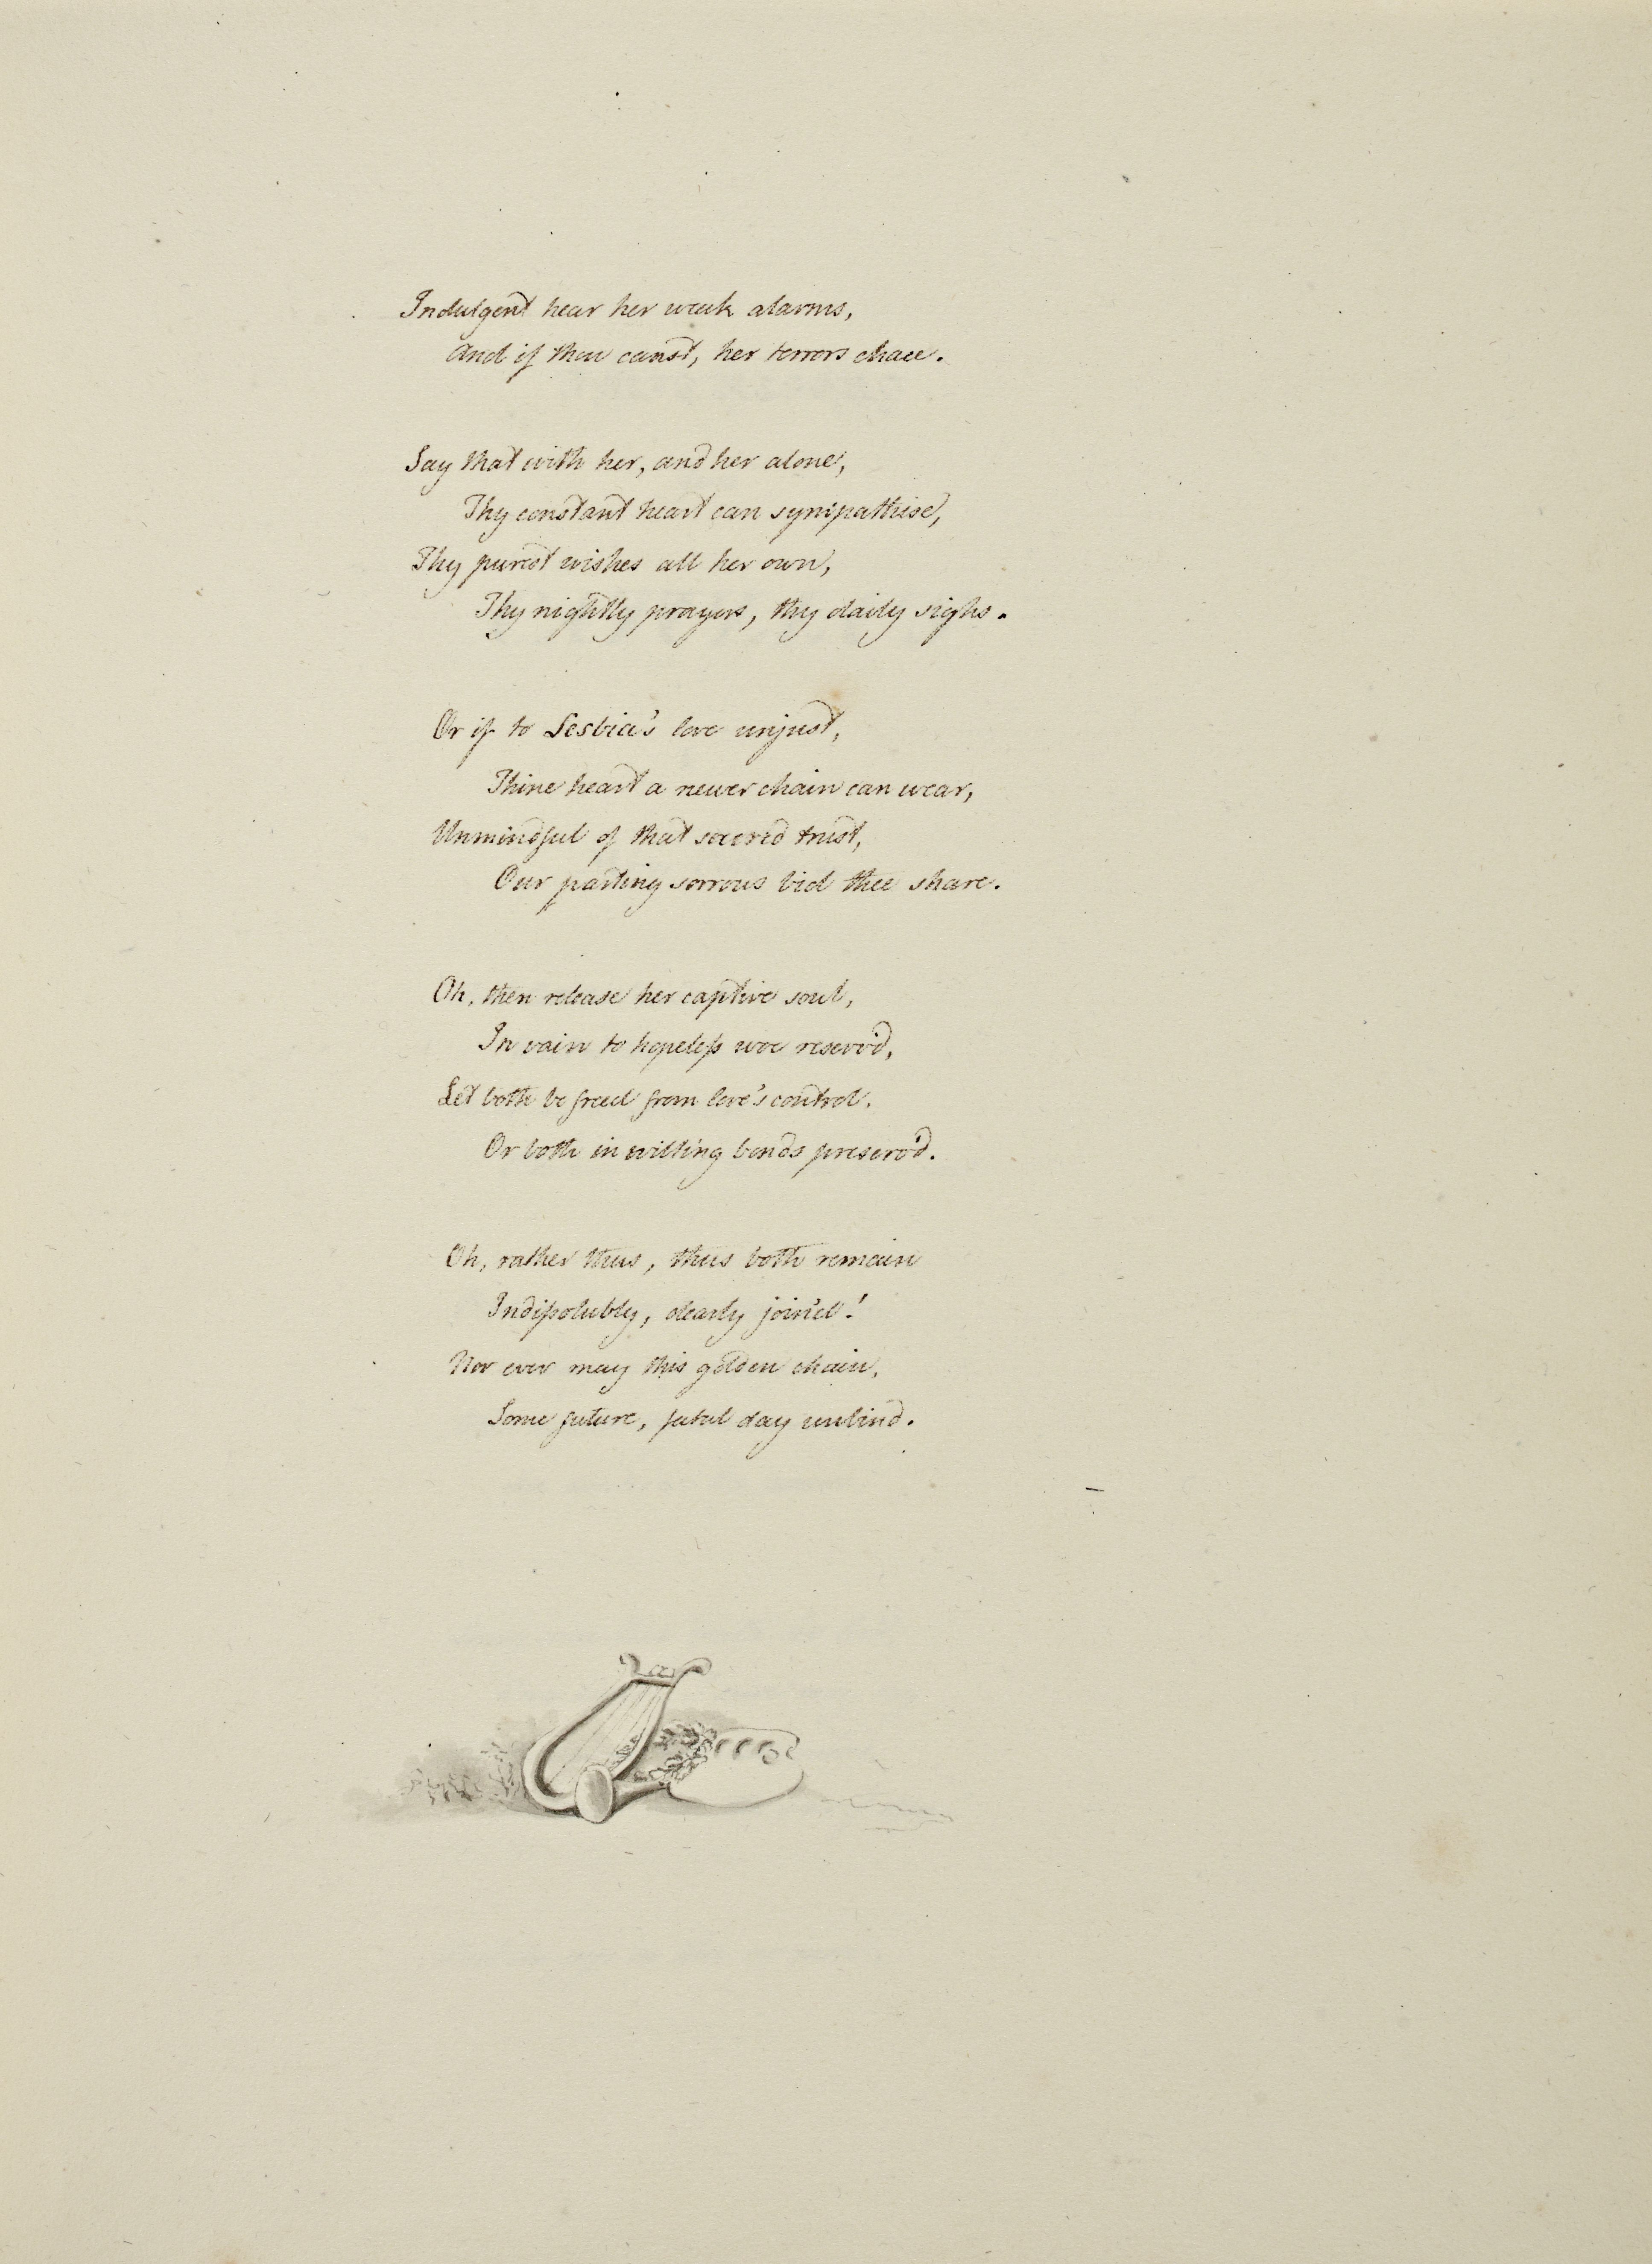 Indulgent hear her weak alarms,
And if thou canst, her terrors chace.
Say that with her, and her alone,
Thy constant heart can sympathise,
Thy purest wishes all her own,
Thy nightly prayers, thy daily sighs.
Or if to Lesbia's love unjust,
Thine heart a newer chain can wear,
Unmindful of that sacred trust,
Our parting sorrows bid thee share.
Oh, then release her captive soul,
In vain to hopeless woe reserv'd,
Let both be freed from love's control.
Or both in willing bonds preserv'd.
Oh, rather thus, thus both remain
Indissolubly, dearly join'd!
Nor ever may this golden chain,
Some future, fatal day unbind.